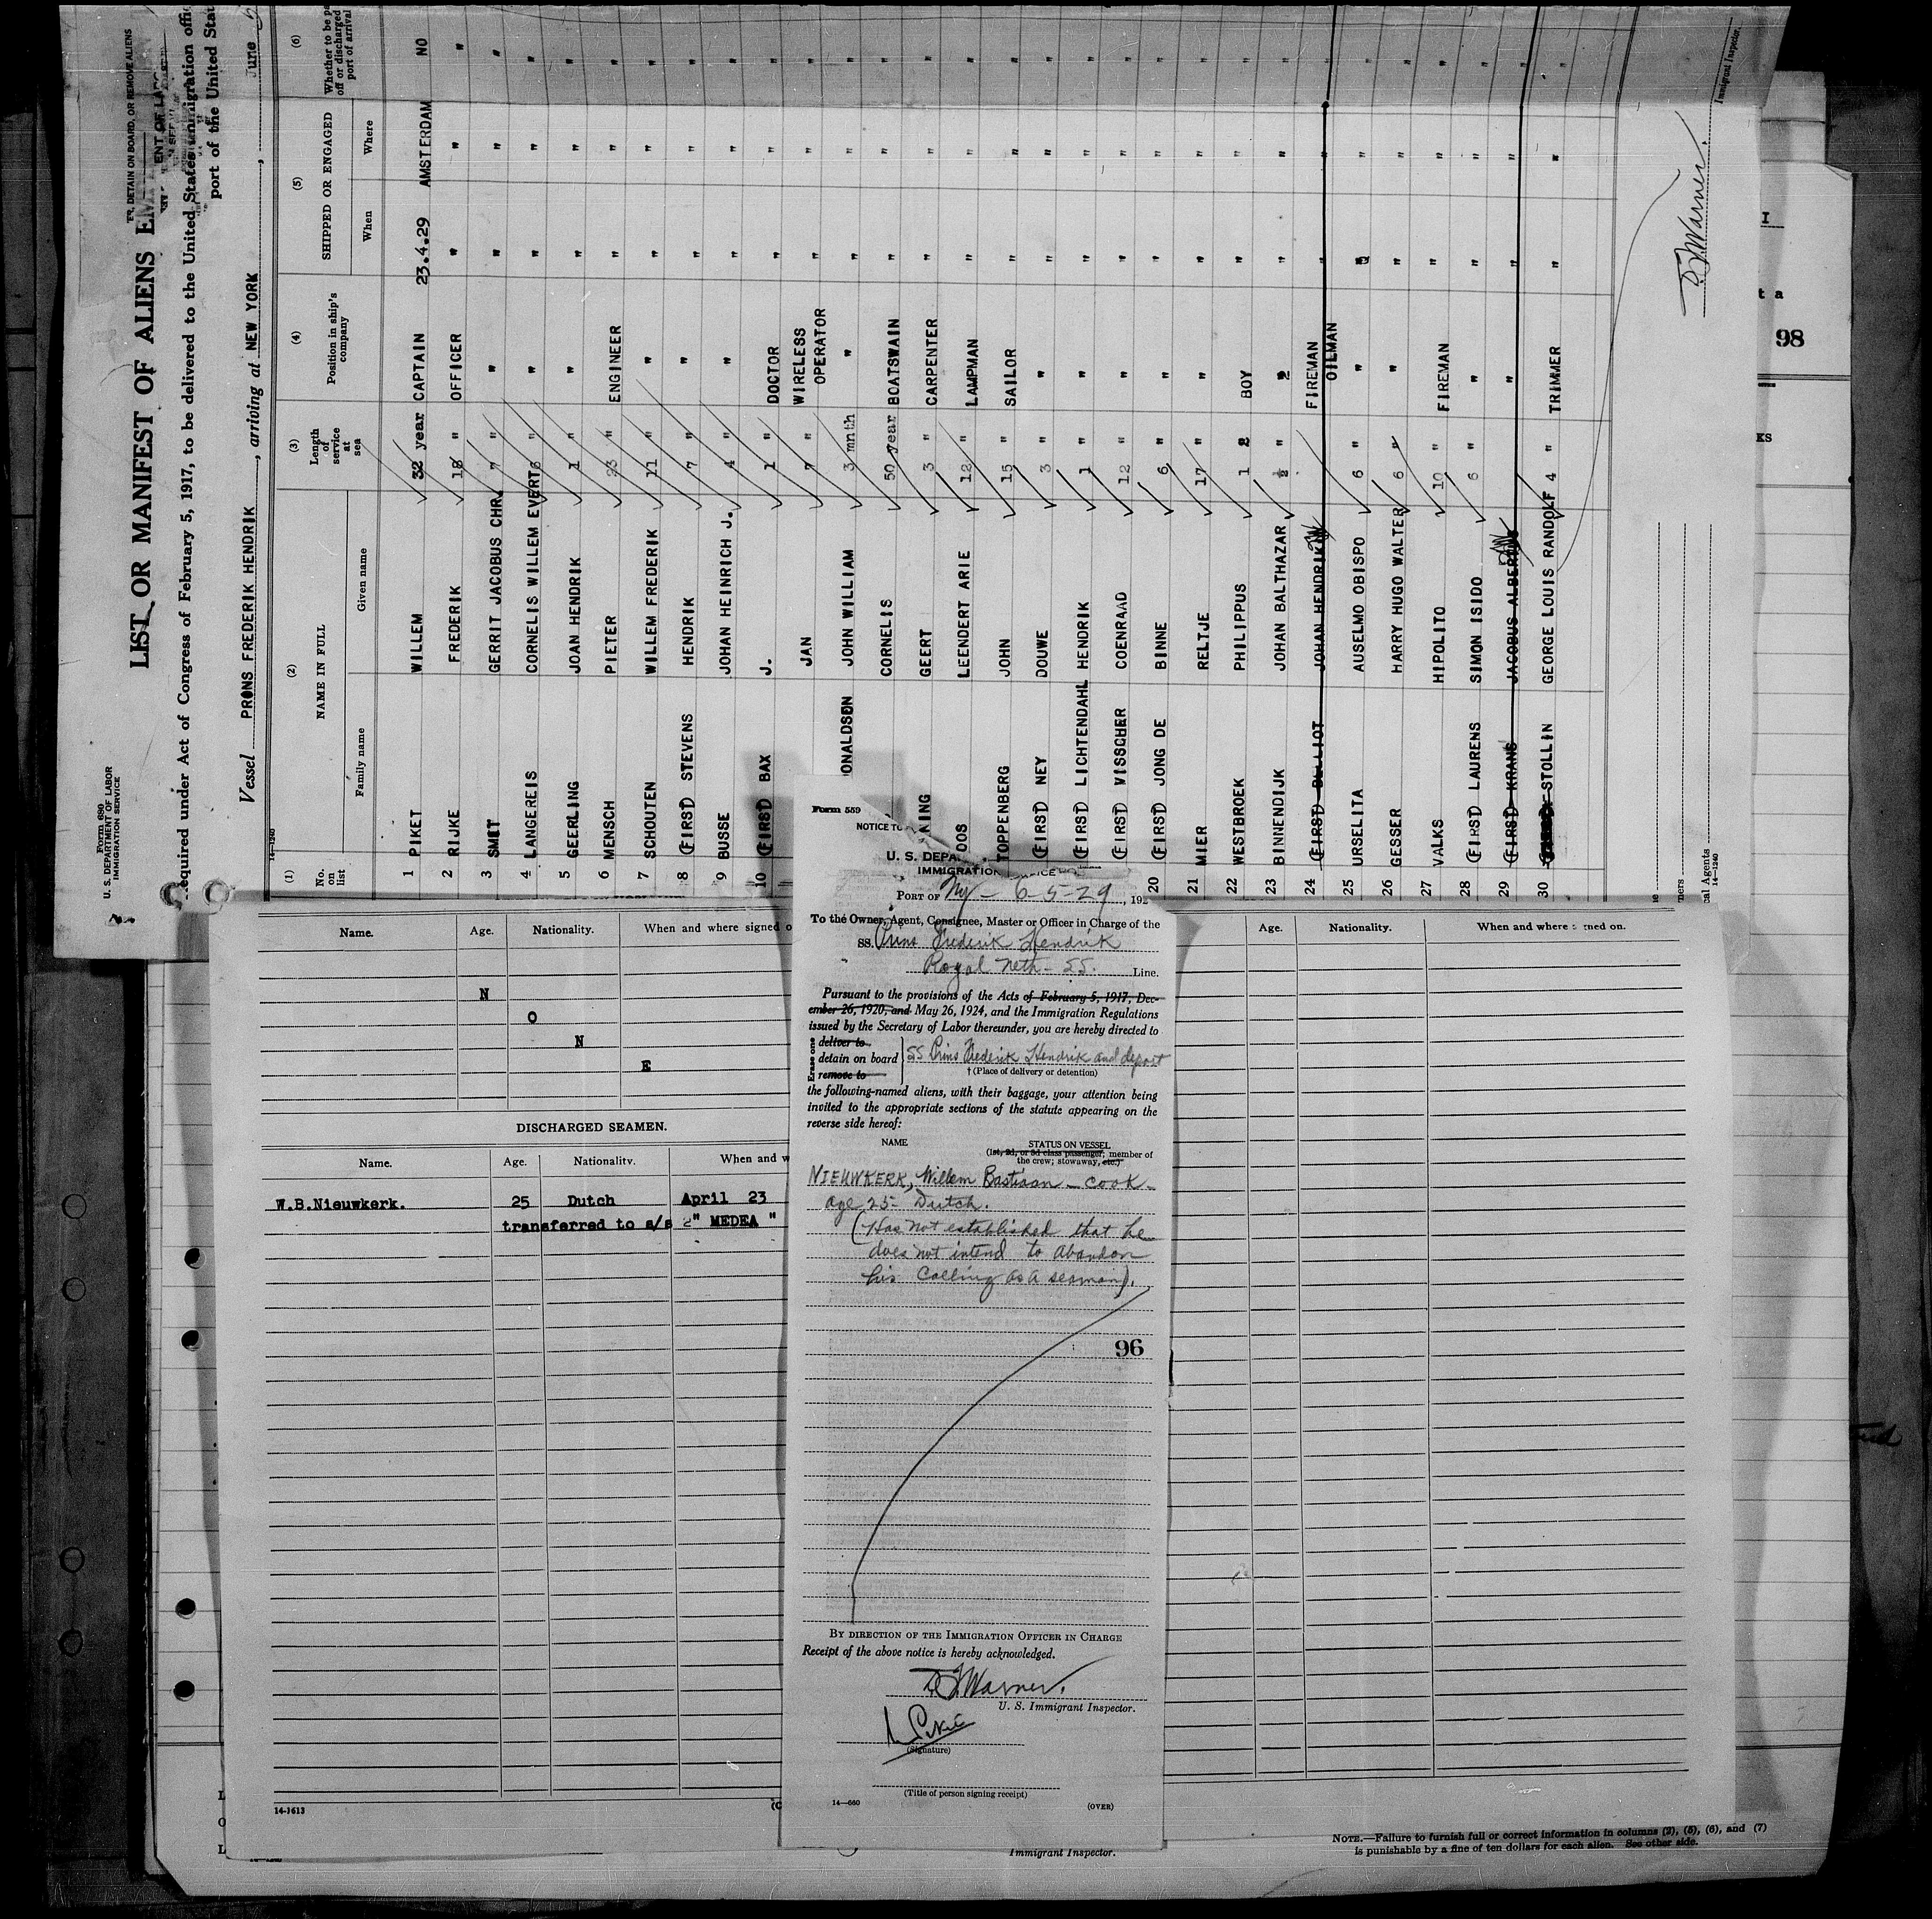 Form 680
U. S. DEPARTMENT OF LABOR
IMMIGRATION SERVICE
DETAIN ON BOARD, OR REMOVE ALIENS
LIST OR MANIFEST OF ALIENS
equired under Act of Congress of February 5, 1917, to be delivered to the United States immigration offi
port of the United Stat
Vessel PRONS FREDERIK HENDRIK, arriving at NEW YORK, June 5
14-1240
(1) (2) (3) (4) (5) (6)
No. on list NAME IN FULL Length of service at sea Position in ship's company SHIPPED OR ENGAGED Whether to be pa off or discharged port of arrival
Family name Given name When Where
1 PIKET WILLEM 32 year CAPTAIN 23.4.29 AMSTERDAM NO
2 RIJKE FREDERIK 18 " OFFICER " " "
3 SMIT GERRIT JACOBUS CHR. 7 " " " " "
4 LANGEREIS CORNELIS WILLEM EVERT 6 " " " " "
5 GEERLING JOAN HENDRIK 1 " " " " "
6 MENSCH PIETER 23 " ENGINEER " " "
7 SCHOUTEN WILLEM FREDERIK 11 " " " " "
8 (FIRST) STEVENS HENDRIK 7 " " " " "
9 BUSSE JOHAN HEINRICH J. 4 " " " " "
10 (FIRST) BAX J. 1 " DOCTOR " " "
JAN 7 " WIRELESS OPERATOR " " "
ONALDSON JOHN WILLIAM 3 mnth " " " "
CORNELIS 50 year BOATSWAIN " " "
NING GEERT 3 " CARPENTER " " "
OOS LEENDERT ARIE 12 " LAMPMAN " " "
TOPPENBERG JOHN 15 " SAILOR " " "
(FIRST) NEY DOUWE 3 " " " " "
(FIRST) LICHTENDAHL HENDRIK 1 " " " " "
(FIRST) VISSCHER COENRAAD 12 " " " " "
20 (FIRST) JONG DE BINNE 6 " " " " "
21 MIER RELTJE 17 " " " " "
22 WESTBROEK PHILIPPUS 1 2 BOY " " "
23 BINNENDIJK JOHAN BALTHAZAR ½ " 2 " " "
24 (FIRST) BELLIOT JOHAN HENDRIKUS FIREMAN " " "
25 URSELITA AUSELMO OBISPO 6 " OILMAN " " " "
26 GESSER HARRY HUGO WALTER 6 " " " " "
27 VALKS HIPOLITO 10 " FIREMAN " " "
28 (FIRST) LAURENS SIMON ISIDO 6 " " " " "
29 (FIRST) KRANS JACOBUS ALBERTUS " " " "
30 STOLLIN GEORGE LOUIS RANDOLF 4 " TRIMMER " " "
D J Warner.
Immigrant Inspector.
14-1240
98
Name. Age. Nationality. When and where signed o
N
O
N
E
DISCHARGED SEAMEN.
Name. Age. Nationality. When and w
W.B.Nieuwkerk. 25 Dutch April 23
transferred to s/s " MEDEA "
14-1613
Form 559
NOTICE TO
U. S. DEPA
IMMIGRATION
PORT OF Ny - 6-5-29, 192
To the Owner, Agent, Consignee, Master or Officer in Charge of the
SS. Prins Frederik Hendrik
Royal Neth - SS. Line.
Pursuant to the provisions of the Acts of February 5, 1917, Dec-
ember 26, 1920, and May 26, 1924, and the Immigration Regulations
issued by the Secretary of Labor thereunder, you are hereby directed to
Erase one
deliver to
detain on board SS Prins Frederik Hendrik and deport
remove to † (Place of delivery or detention)
the following-named aliens, with their baggage, your attention being
invited to the appropriate sections of the statute appearing on the
reverse side hereof:
NAME STATUS ON VESSEL
(1st, 2d, or 3d class passenger, member of
the crew; stowaway, etc.)
NIEUWKERK, Willem Bastiaan - cook -
age 25 - Dutch.
(Has not established that he
does not intend to abandon
his calling as a seaman).
96
BY DIRECTION OF THE IMMIGRATION OFFICER IN CHARGE
Receipt of the above notice is hereby acknowledged.
D J Warner.
U. S. Immigrant Inspector.
(Signature)
(Title of person signing receipt)
14-560
(OVER)
Age. Nationality. When and where
Immigrant Inspector.
NOTE.—Failure to furnish full or correct information in columns (2), (5), (6), and (7)
is punishable by a fine of ten dollars for each alien. See other side.